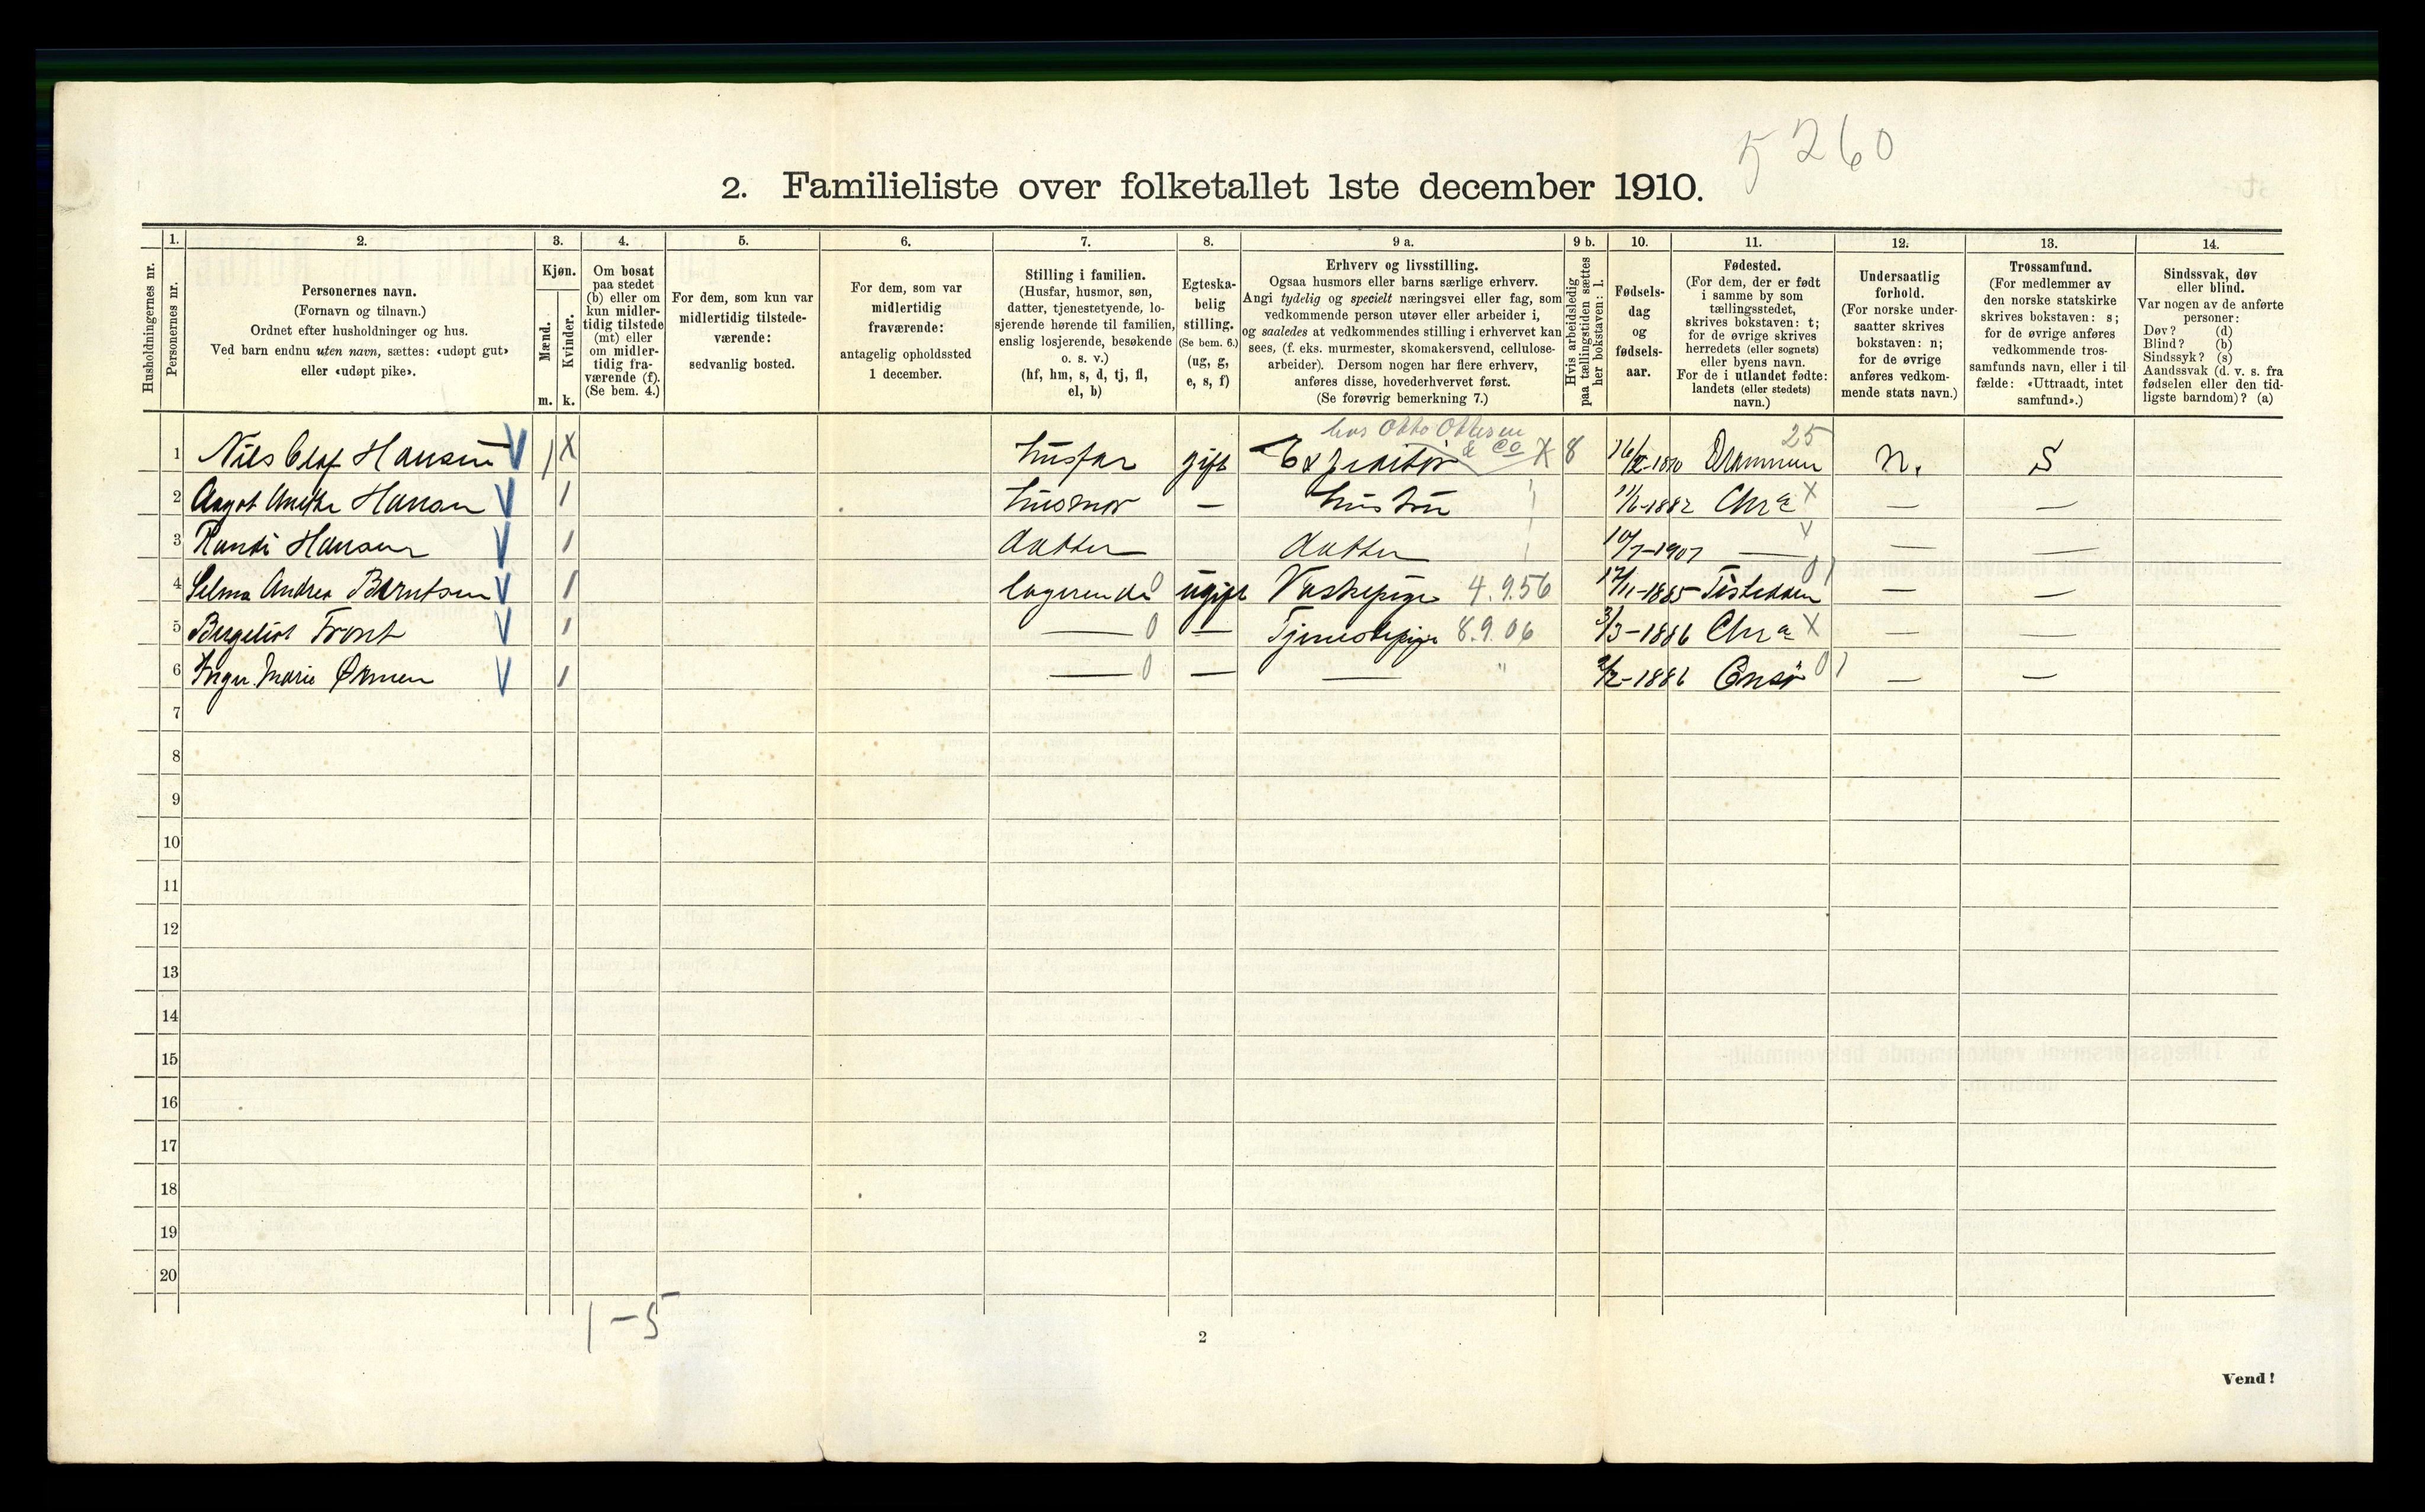 5260
2. Familieliste over folketallet 1ste december 1910.
1. 2. 3. 4. 5. 6. 7. 8. 9 a. 9 b. 10. 11. 12. 13. 14.
Husholdningernes nr.
Personernes nr.
Personernes navn.
(Fornavn og tilnavn.)
Ordnet efter husholdninger og hus.
Ved barn endnu uten navn, sættes: «udøpt gut»
eller «udøpt pike».
Kjøn.
Mænd.
Kvinder.
m. k.
Om bosat
paa stedet
(b) eller om
kun midler-
tidig tilstede
(mt) eller
om midler-
tidig fra-
værende (f).
(Se bem. 4.)
For dem, som kun var
midlertidig tilstede-
værende:
sedvanlig bosted.
For dem, som var
midlertidig
fraværende:
antagelig opholdssted
1 december.
Stilling i familien.
(Husfar, husmor, søn,
datter, tjenestetyende, lo-
sjerende hørende til familien,
enslig losjerende, besøkende
o. s. v.)
(hf, hm, s, d, tj, fl,
el, b)
Egteska-
belig
stilling.
(Se bem. 6.)
(ug, g,
e, s, f)
Erhverv og livsstilling.
Ogsaa husmors eller barns særlige erhverv.
Angi tydelig og specielt næringsvei eller fag, som
vedkommende person utøver eller arbeider i,
og saaledes at vedkommendes stilling i erhvervet kan
sees, (f. eks. murmester, skomakersvend, cellulose-
arbeider). Dersom nogen har flere erhverv,
anføres disse, hovederhvervet først.
(Se forøvrig bemerkning 7.)
Hvis arbeidsledig
paa tællingstiden sættes
her bokstaven: l.
Fødsels-
dag
og
fødsels-
aar.
Fødested.
(For dem, der er født
i samme by som
tællingsstedet,
skrives bokstaven: t;
for de øvrige skrives
herredets (eller sognets)
eller byens navn.
For de i utlandet fødte:
landets (eller stedets)
navn.)
Undersaatlig
forhold.
(For norske under-
saatter skrives
bokstaven: n;
for de øvrige
anføres vedkom-
mende stats navn.)
Trossamfund.
(For medlemmer av
den norske statskirke
skrives bokstaven: s;
for de øvrige anføres
vedkommende tros-
samfunds navn, eller i til
fælde: «Uttraadt, intet
samfund».)
Sindssvak, døv
eller blind.
Var nogen av de anførte
personer:
Døv? (d)
Blind? (b)
Sindssyk? (s)
Aandssvak (d. v. s. fra
fødselen eller den tid-
ligste barndom)? (a)
hos Otto Ottesen & Co 25
1 Nils Olaf Hansen V 1 X husfar gift Expeditør X 8 Drammen n. S
2 Aagot Hansen V 1 husmor — hustru 11/6-1882 Chr a X — —
3 Randi Hansen V 1 datter datter 10/7-1907 — X — —
4 Selma Andrea Berntsen V 1 logerende 0 ugift Vaskepige 4.9.56 17/11-1885 Tistedalen 01 — —
5 Bergliot Front V 1 — 0 — Tjenestepige 8.9.06 3/3-1886 Chr a X — —
6 Inger Marie V 1 — 0 — — " 2/2-1886 Onsø 01 — —
7
8
9
10
11
12
13
14
15
16
17
18
19
20
1-5
2
Vend!